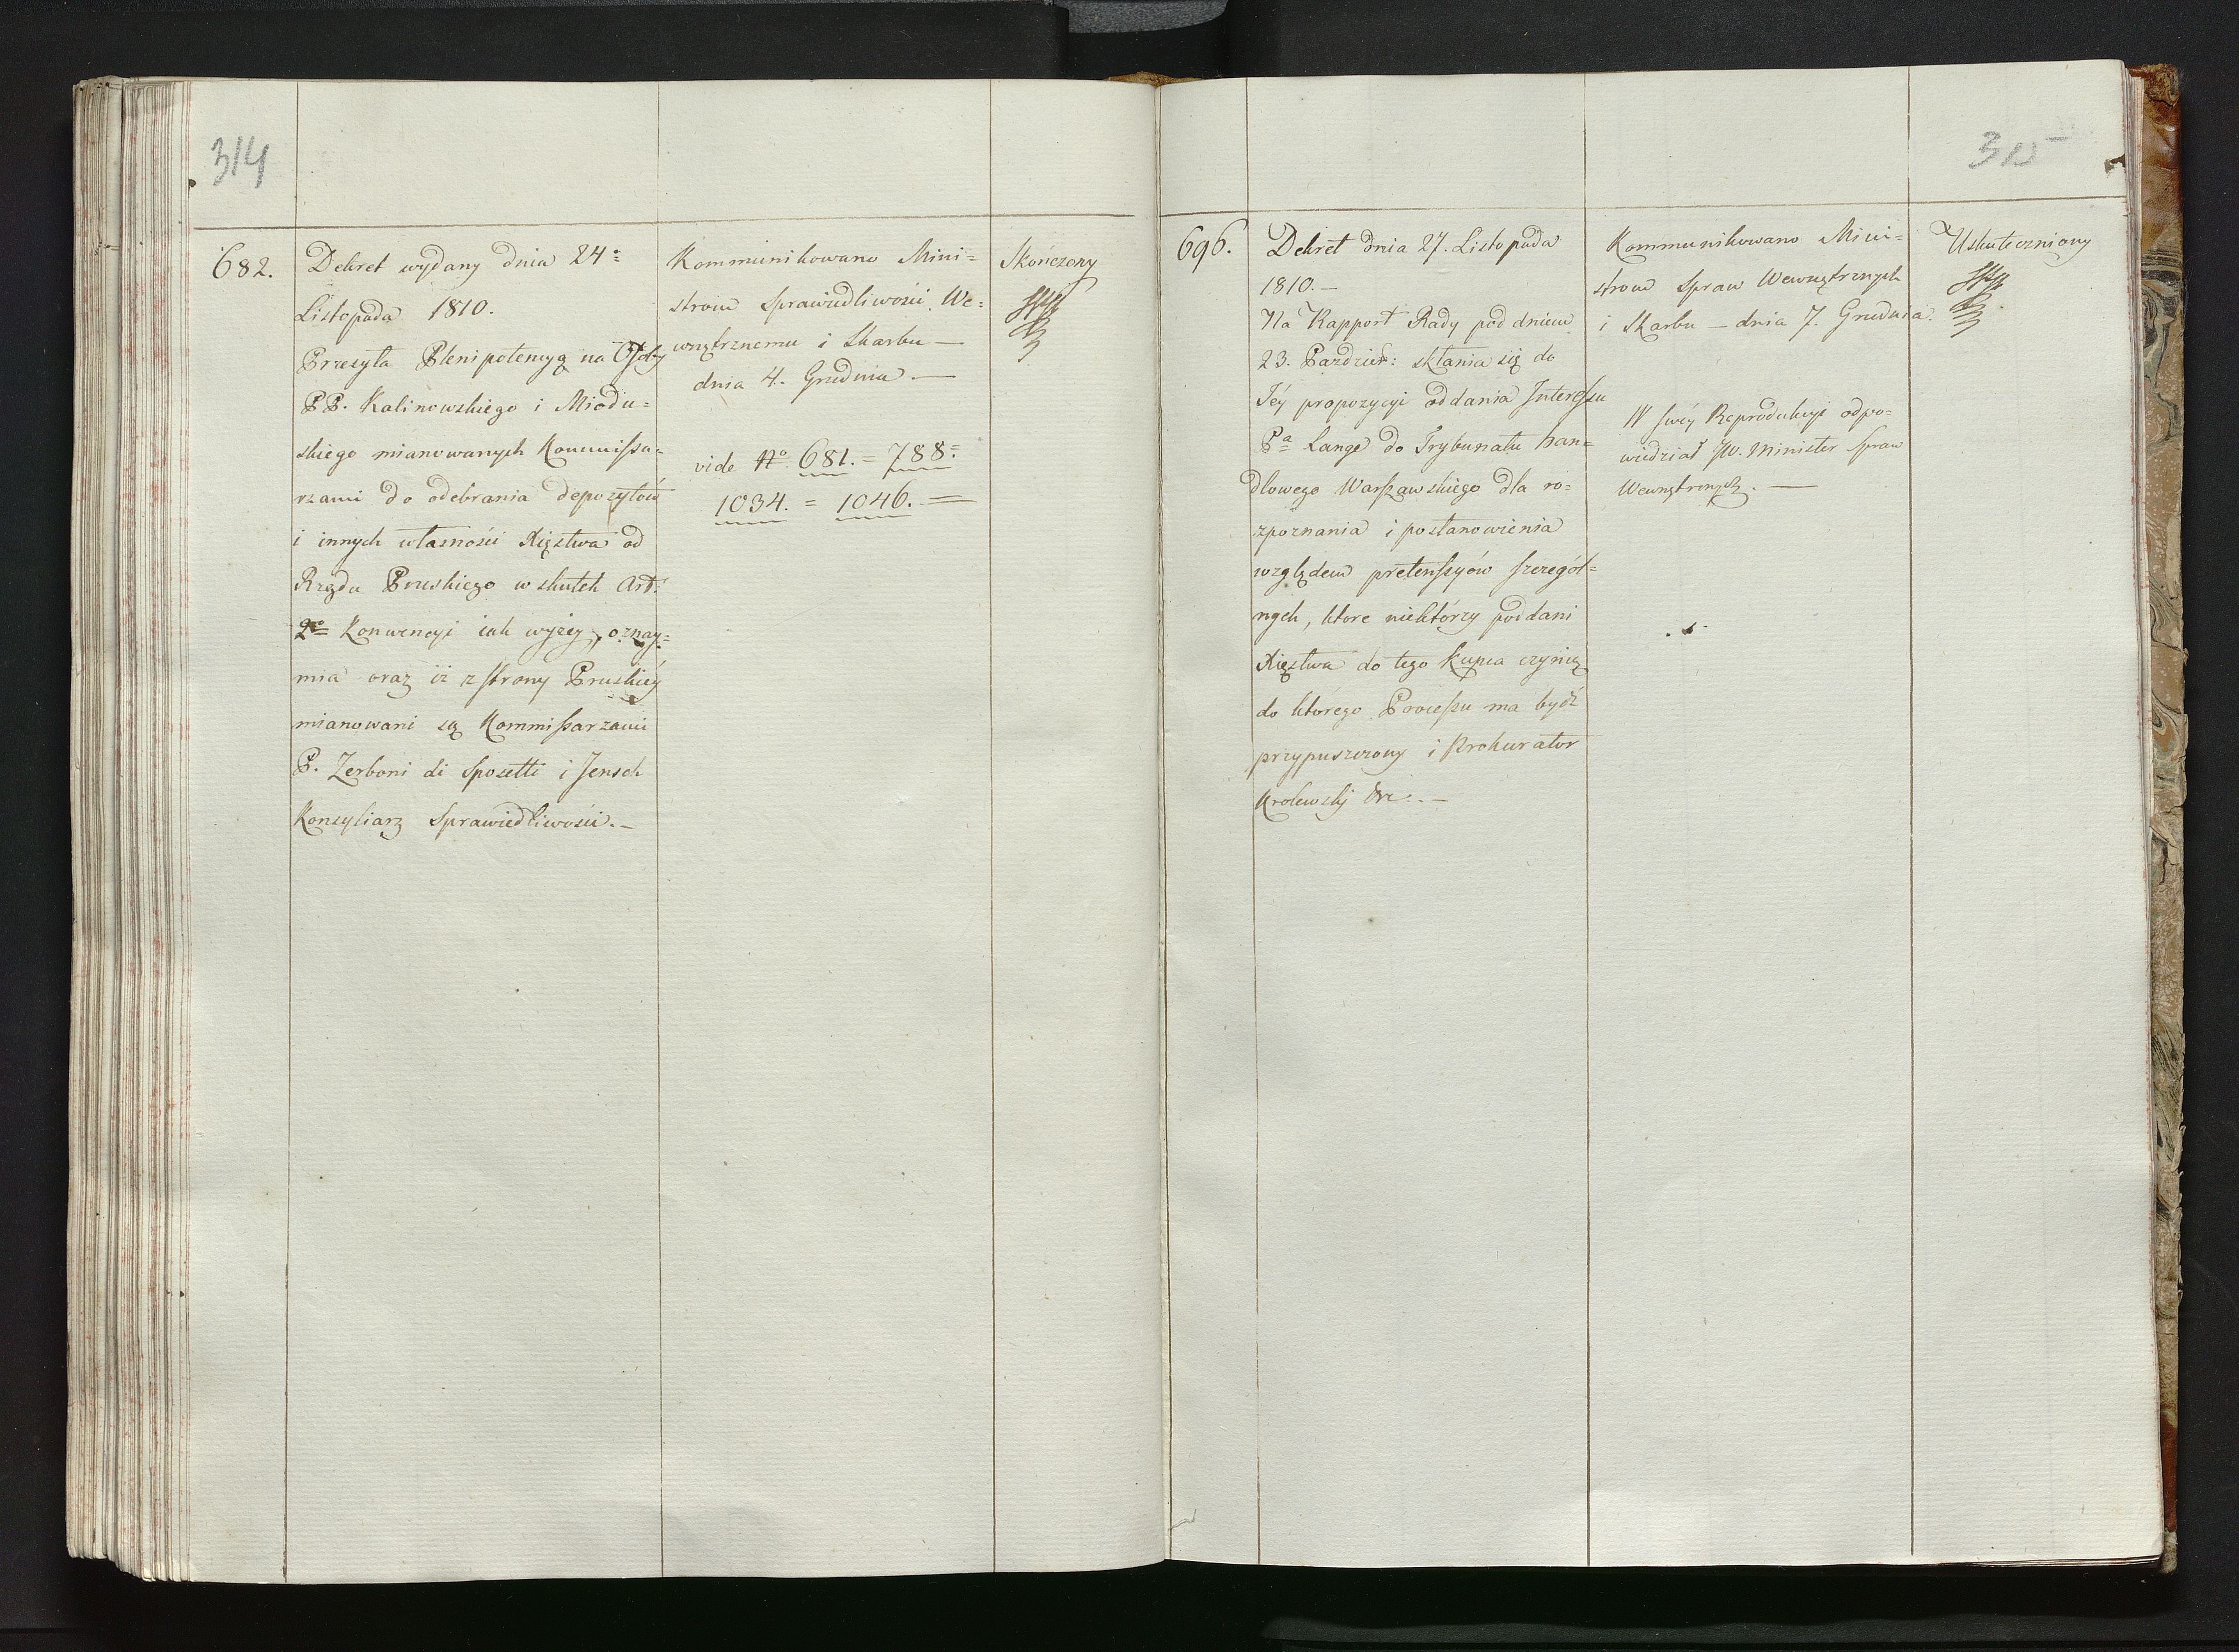 314
682.
Dekret wydany dnia 24=
Listopada 1810.
Przesyła Plenipotencyą na Osoby
PP. Kalinowskiego i Miodu=
skiego mianowanych Kommissa=
rzami do odebrania depozytów
i innych własności Xięstwa od
Rządu Pruskiego w skutek Art:
2go Konwencyi iak wyżey, oznay=
mia oraz iż z strony Pruskiéy
mianowani są Kommissarzami
P. Zerboni di Sposetti i Jensch
Konsyliarz Sprawiedliwości.—
Kommunikowano Mini=
strom Sprawiedliwości We=
wnętrznemu i Skarbu —
dnia 4. Grudnia.—
vide No 681. = 788=
1034. = 1046. =
Skończony
315
696.
Dekret dnia 27. Listopada
1810.—
Na Rapport Rady pod dniem
23. Paździer: skłania się do
Téy propozycyi oddania Interessu
Pa Lange do Trybunału han=
dlowego Warszawskiego dla ro=
zpoznania i postanowienia
względem pretensyów szczegól=
nych, ktore niektórzy poddani
Xięstwa do tego Kupca czynią
do którego Processu ma bydź
przypuszczony i Prokurator
Krolewski &c.—
Kommunikowano Mini=
strom Spraw Wewnętrznych
i Skarbu — dnia 7. Grudnia.
W swéy Reprodukcyi odpo=
wiedział JW. Minister Spraw
Wewnętrznych.—
Uskuteczniony